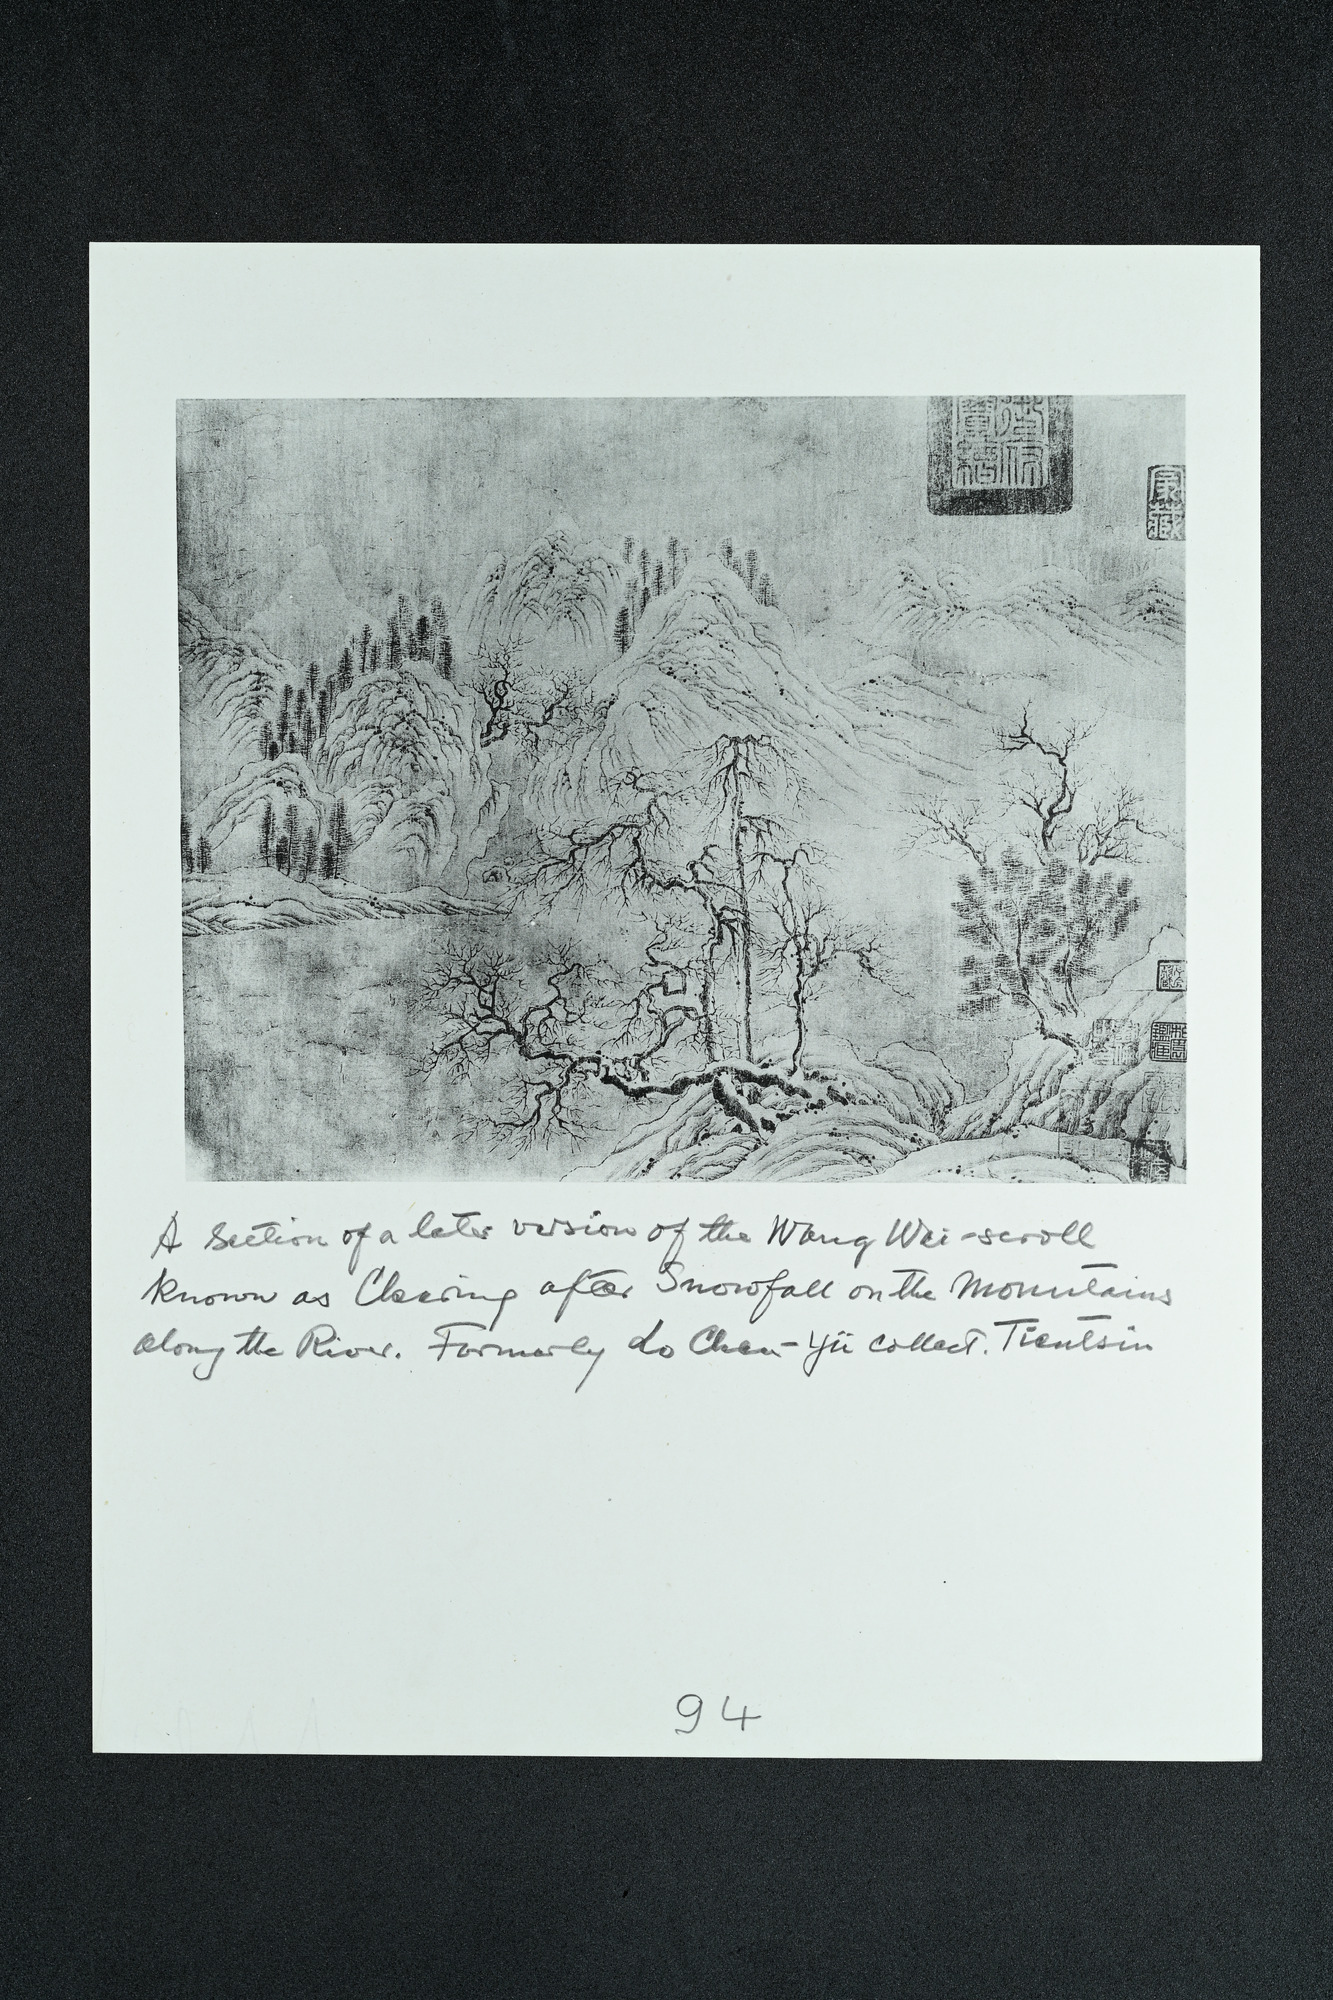 家藏
A section of a later version of the Wang Wei-scroll
known as Clearing after Snowfall on the Mountains
along the River. Formerly Lo Chen-Yü collect. Tientsin
94